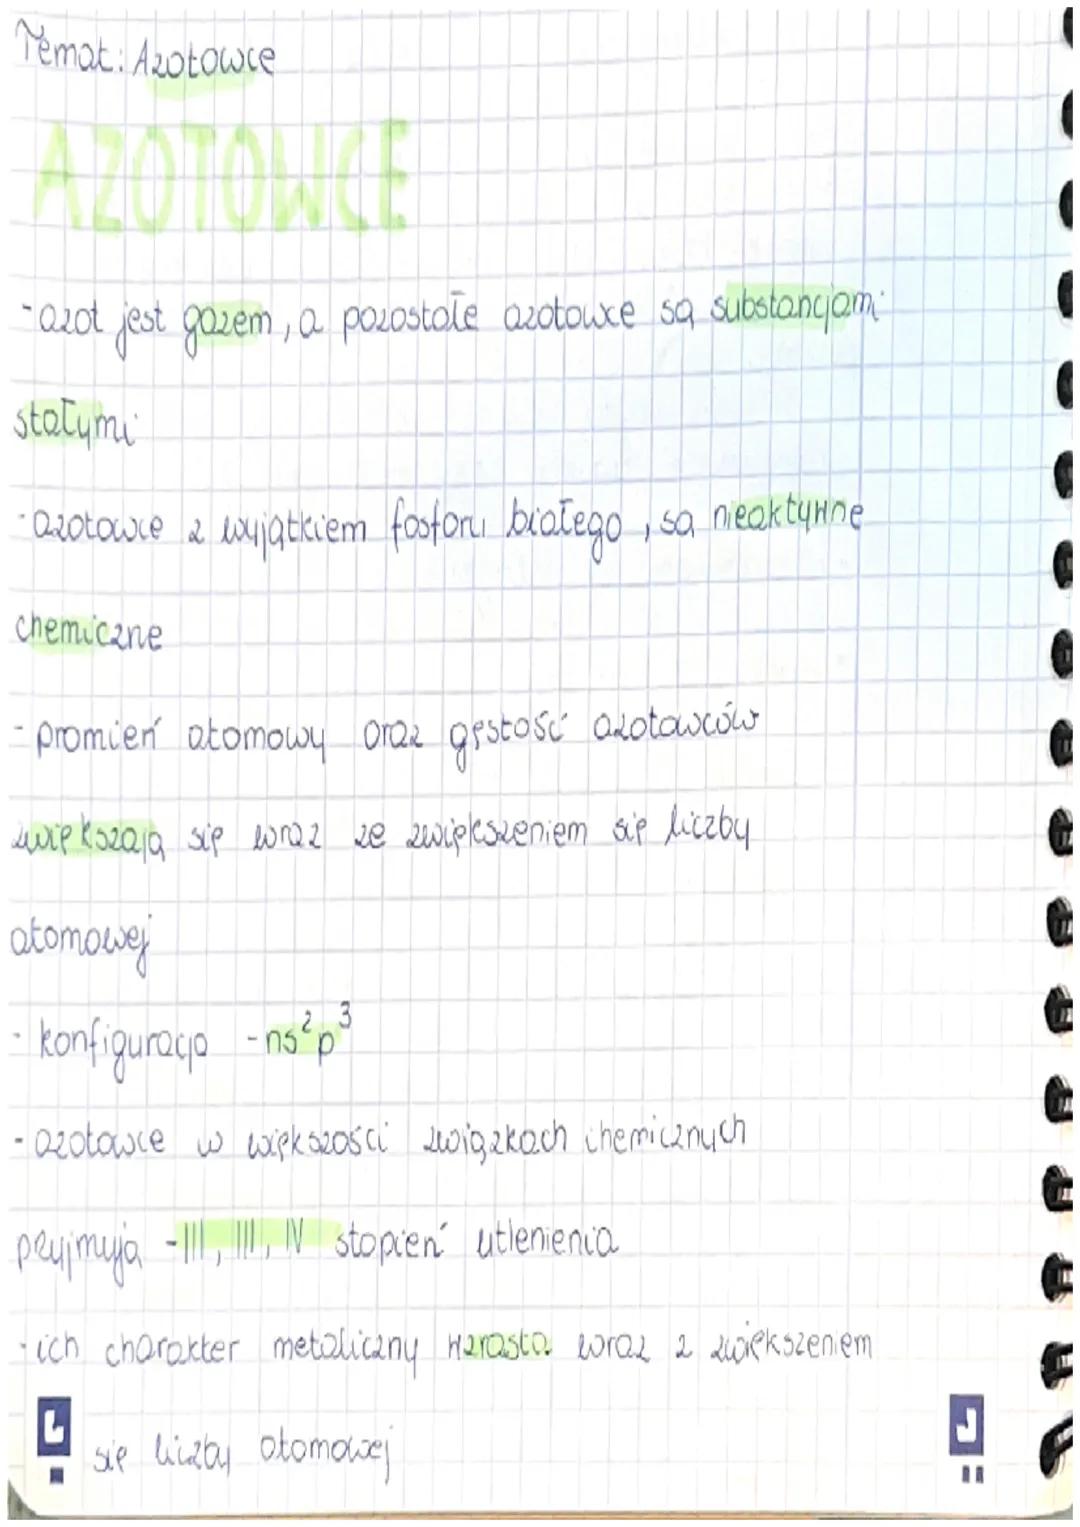 Temat: Azotowce
AZOTOWCE
- azot jest gazem, a pozostałe azotowce są substancjami
stałymi
- azotowce z wyjątkiem fosforu białego, są nieaktywne
chemiczne
- promień atomowy oraz gęstość azotowców
zwiększają się wraz ze zwiększeniem się liczby
atomowej
- konfiguracja - ns²p³
- azotowce w większości związkach chemicznych
peyjmują -III, III, IV stopień utlenienia
- ich charakter metaliczny wzrasta wraz z zwiększeniem
się liczby atomowej